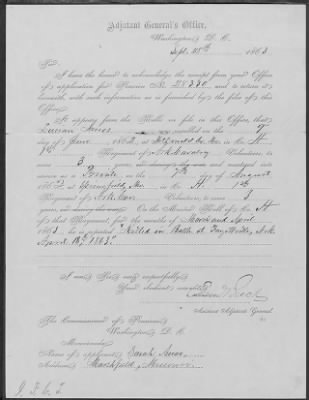 Adjutant General's Office,
Washington, D. C.
Sept. 1863
Sir:
I have the honor to acknowledge the receipt from your Office
of application for Pension No. 28330, and to return it
herewith, with such information as is furnished by the files of this
Office.
It appears from the Rolls on file in this Office, that
was enrolled on the 9
day of June, 1862, at Mo. in Co. A
Regiment of Ark Cavalry Volunteers, to serve
3 years, and mustered into
service as a Private on the 7th day of August
1862, at Springfield, Mo., in Co. A 1st
Regiment of Ark Cav. Volunteers, to serve 3
years, On the Muster Roll of Co. A
of that Regiment, for the months of March and April
1863, he is reported "Killed in Battle at Fayetteville, Ark.
April 18th 1863."
I am, Sir, very respectfully,
Your obedient servant,
Assistant Adjutant General.
The Commissioner of Pensions,
Washington, D. C.
Memoranda:
Name of applicant, Sarah
Address, Marshfield, Missouri